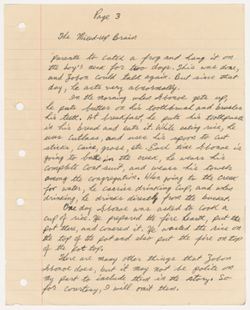 Page 3
The Mixed-up Brain
parents to catch a frog and hang it on
the boy's neck for two days. This was done,
and Zobon could talk again. But since that
day, he acts very abnormally.
In the morning when Monroe gets up,
he puts butter on his toothbrush and brushes
his teeth. At breakfast he puts his toothpaste
in his bread and eats it. While eating rice, he
uses cutlass, and uses his spoon to cut
sticks, cane, grass, etc. Each time Monroe is
going to bathe in the creek, he wears his
complete coat suit, and wears his towels
among the congregation. When going to the creek
for water, he carries drinking cup, and when
drinking, he drinks directly from the bucket.
One day Monroe was asked to cook a
cup of rice. He prepared the fire hearth, put the
pot there, and covered it. He washed the rice on
the top of the pot and also put the fire on top
of the pot top.
There are many other things that Zobon
Monroe does, but it may not be polite on
my part to include them in the story. So
for courtesy, I will omit them.